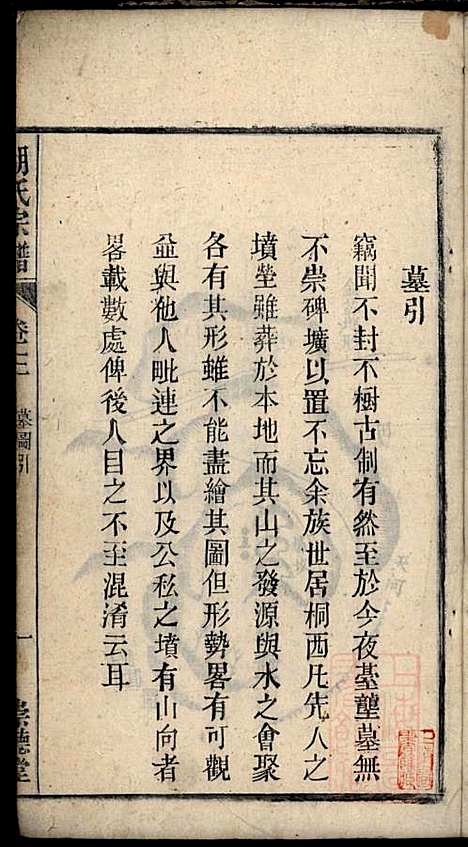 墓引
竊聞不封不樹古制有然至於今夜臺壟墓無
不崇碑壙以置不忘余族世居桐西凡先人之
墳塋雖葬於本地而其山之發源與水之會聚
各有其形雖不能盡繪其圖但形勢畧有可觀
並與他人毗連之界以及公私之墳有山向者
畧載數處俾後人目之不至混淆云耳
胡氏宗譜
墓圖引
一
崇德堂